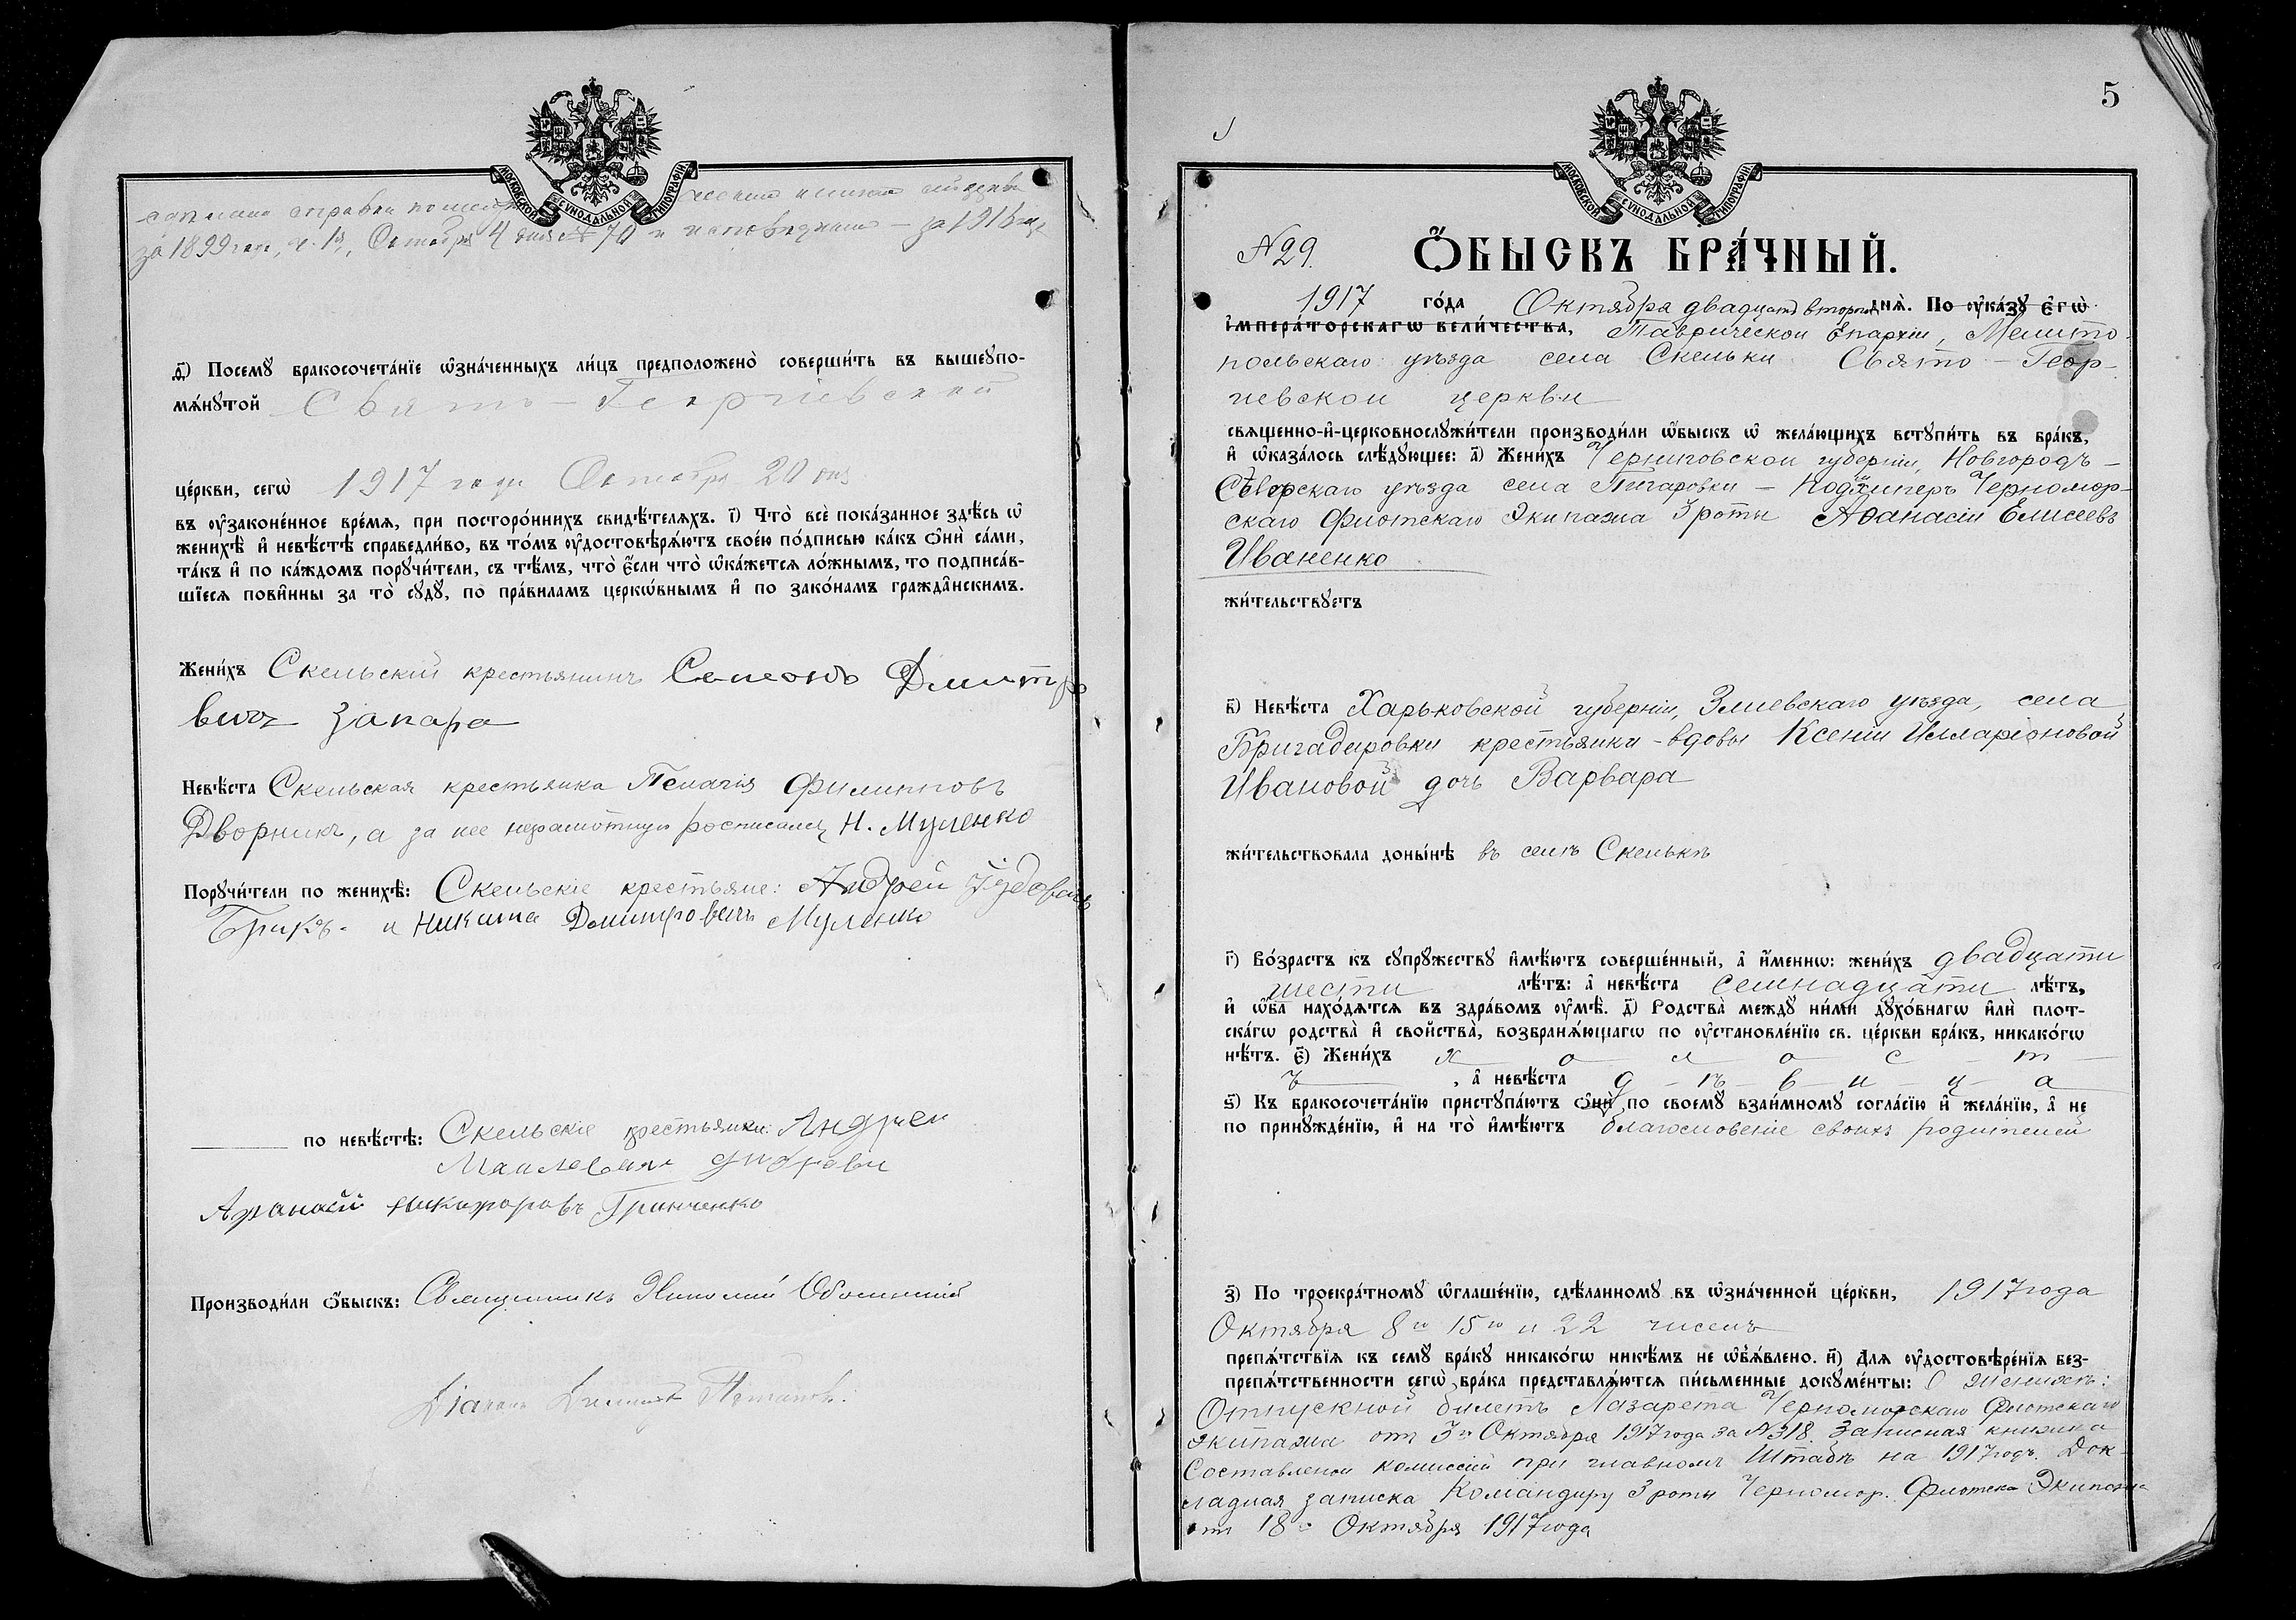 МОСКОВСКОЙ СѴНОДАЛЬНОЙ ТИПОГРАФІИ
справки
за 1899 год, ч. 1я, Октября 4 дня № 70 и исповедная — за 1916 год
д҃) Посемꙋ бракосочета́нїе ѡ҆зна́ченныхъ ли́цъ предположено̀ соверши́ть въ вышеꙋпо-
мѧ́нꙋтой Свято-Георгіевской
це́ркви, сегѡ̀ 1917 года Октября 20 дня
въ ᲂу҆законе́нное вре́мѧ, при посторо́ннихъ свидѣ́телѧхъ. і҃) Что̀ всѐ пока́занное здѣ́сь ѡ҆
женихѣ̀ и҆ невѣ́стѣ справедли́во, въ то́мъ ᲂу҆достовѣрѧ́ютъ свое́ю по́дписью ка́къ ѻ҆нѝ са́ми,
та́къ и҆ по ка́ждомъ порꙋчи́тели, съ тѣ́мъ, что̀ є҆́сли что̀ ѡ҆ка́жетсѧ ло́жнымъ, то подписа́в-
шїесѧ пови́нны за то̀ сꙋдꙋ̀, по пра́виламъ церко́внымъ и҆ по зако́намъ гражда́нскимъ.
Жени́хъ Скельскій крестьянинъ Семонъ Дмитр
вичъ Запара
Невѣ́ста Скельская крестьянка Пелагія Филипповъ
Дворникъ, а за нее неграмотную росписался Н. Муленко
Порꙋчи́тели по женихѣ̀: Скельскіе крестьяне: Андрей
Брикъ. и Никита Дмитровичъ Муленко
по невѣ́стѣ: Скельскіе крестьяне: Андрей
Афанасій Никифоровъ Гринченко
Производи́ли ѻ҆́быскъ: Священникъ
Діаконъ
5
МОСКОВСКОЙ СѴНОДАЛЬНОЙ ТИПОГРАФІИ
№ 29.
Ѻ҆́БЫСКЪ БРА́ЧНЫЙ.
1917 го́да Октября двадцать второго днѧ̀. По ᲂу҆ка́зꙋ є҆гѡ̀
і҆мпера́торскагѡ вели́чества, Таврической Епархіи, Мелито-
польскаго уѣзда села Скельки Свято-Геор-
гіевской церкви
свѧщенно-и҆-церковнослꙋжи́тели производи́ли ѡ҆́быскъ ѡ҆ жела́ющихъ встꙋпи́ть въ бра́къ,
и҆ ѡ҆каза́лось слѣ́дꙋющее: а҃) Жени́хъ Черниговской губерніи, Новгородъ-
Сѣверскаго уѣзда села Пигаровки — Кодѫшкиперъ Черномор-
скаго Флотскаго Экипажа 3 роты Аѳанасій Елисеевъ
Иваненко
жи́тельствꙋетъ
в҃) Невѣ́ста Харьковской губерніи, Зміевскаго уѣзда, села
Бригадировки крестьянки-вдовы Ксеніи Илларіоновой
Ивановой дочь Варвара
жи́тельствовала доны́нѣ въ селѣ Скелькѣ
г҃) Во́зрастъ къ сꙋпрꙋ́жествꙋ и҆мѣ́ютъ соверше́нный, а҆ и҆́меннѡ: жени́хъ двадцати
шести лѣ́тъ: а҆ невѣ́ста семнадцати лѣ́тъ,
и҆ ѡ҆́ба нахо́дѧтсѧ въ здра́вомъ ᲂу҆мѣ̀. д҃) Родства̀ междꙋ̀ ни́ми дꙋхо́внагѡ и҆лѝ плот-
ска́гѡ родства̀ и҆ свойства̀, возбранѧ́ющагѡ по ᲂу҆становле́нїю св. це́ркви бра́къ, никако́гѡ
нѣ́тъ. є҃) Жени́хъ х о л о с т
ъ, а҆ невѣ́ста д ѣ в и ц а
ѕ҃) Къ бракосочета́нїю пристꙋпа́ютъ ѻ҆нѝ по своемꙋ̀ взаи́мномꙋ согла́сїю и҆ жела́нїю, а҆ не
по принꙋжде́нїю, и҆ на то̀ и҆мѣ́ютъ благословеніе своихъ родителей
з҃) По троекра́тномꙋ ѡ҆глаше́нїю, сдѣ́ланномꙋ въ ѡ҆зна́ченной це́ркви, 1917 года
Октября 8го 15го и 22 чиселъ
препѧ́тствїѧ къ семꙋ̀ бра́кꙋ никако́гѡ никѣ́мъ не ѡ҆б̾ѧ́влено. и҃) Длѧ ᲂу҆достовѣре́нїѧ без-
препѧ́тственности сегѡ̀ бра́ка представлѧ́ютсѧ пи́сьменные докꙋме́нты: О женихѣ:
Отпускной билетъ Лазарета Черноморскаго Флотскаго
экипажа отъ 3го Октября 1917 года за № 318. Записная книжка
Составленой комиссіи при главномъ Штабѣ на 1917 годъ. Док-
ладная записка Командиру 3 роты Черномор. Флотска Экипажа
отъ 18го Октября 1917 года